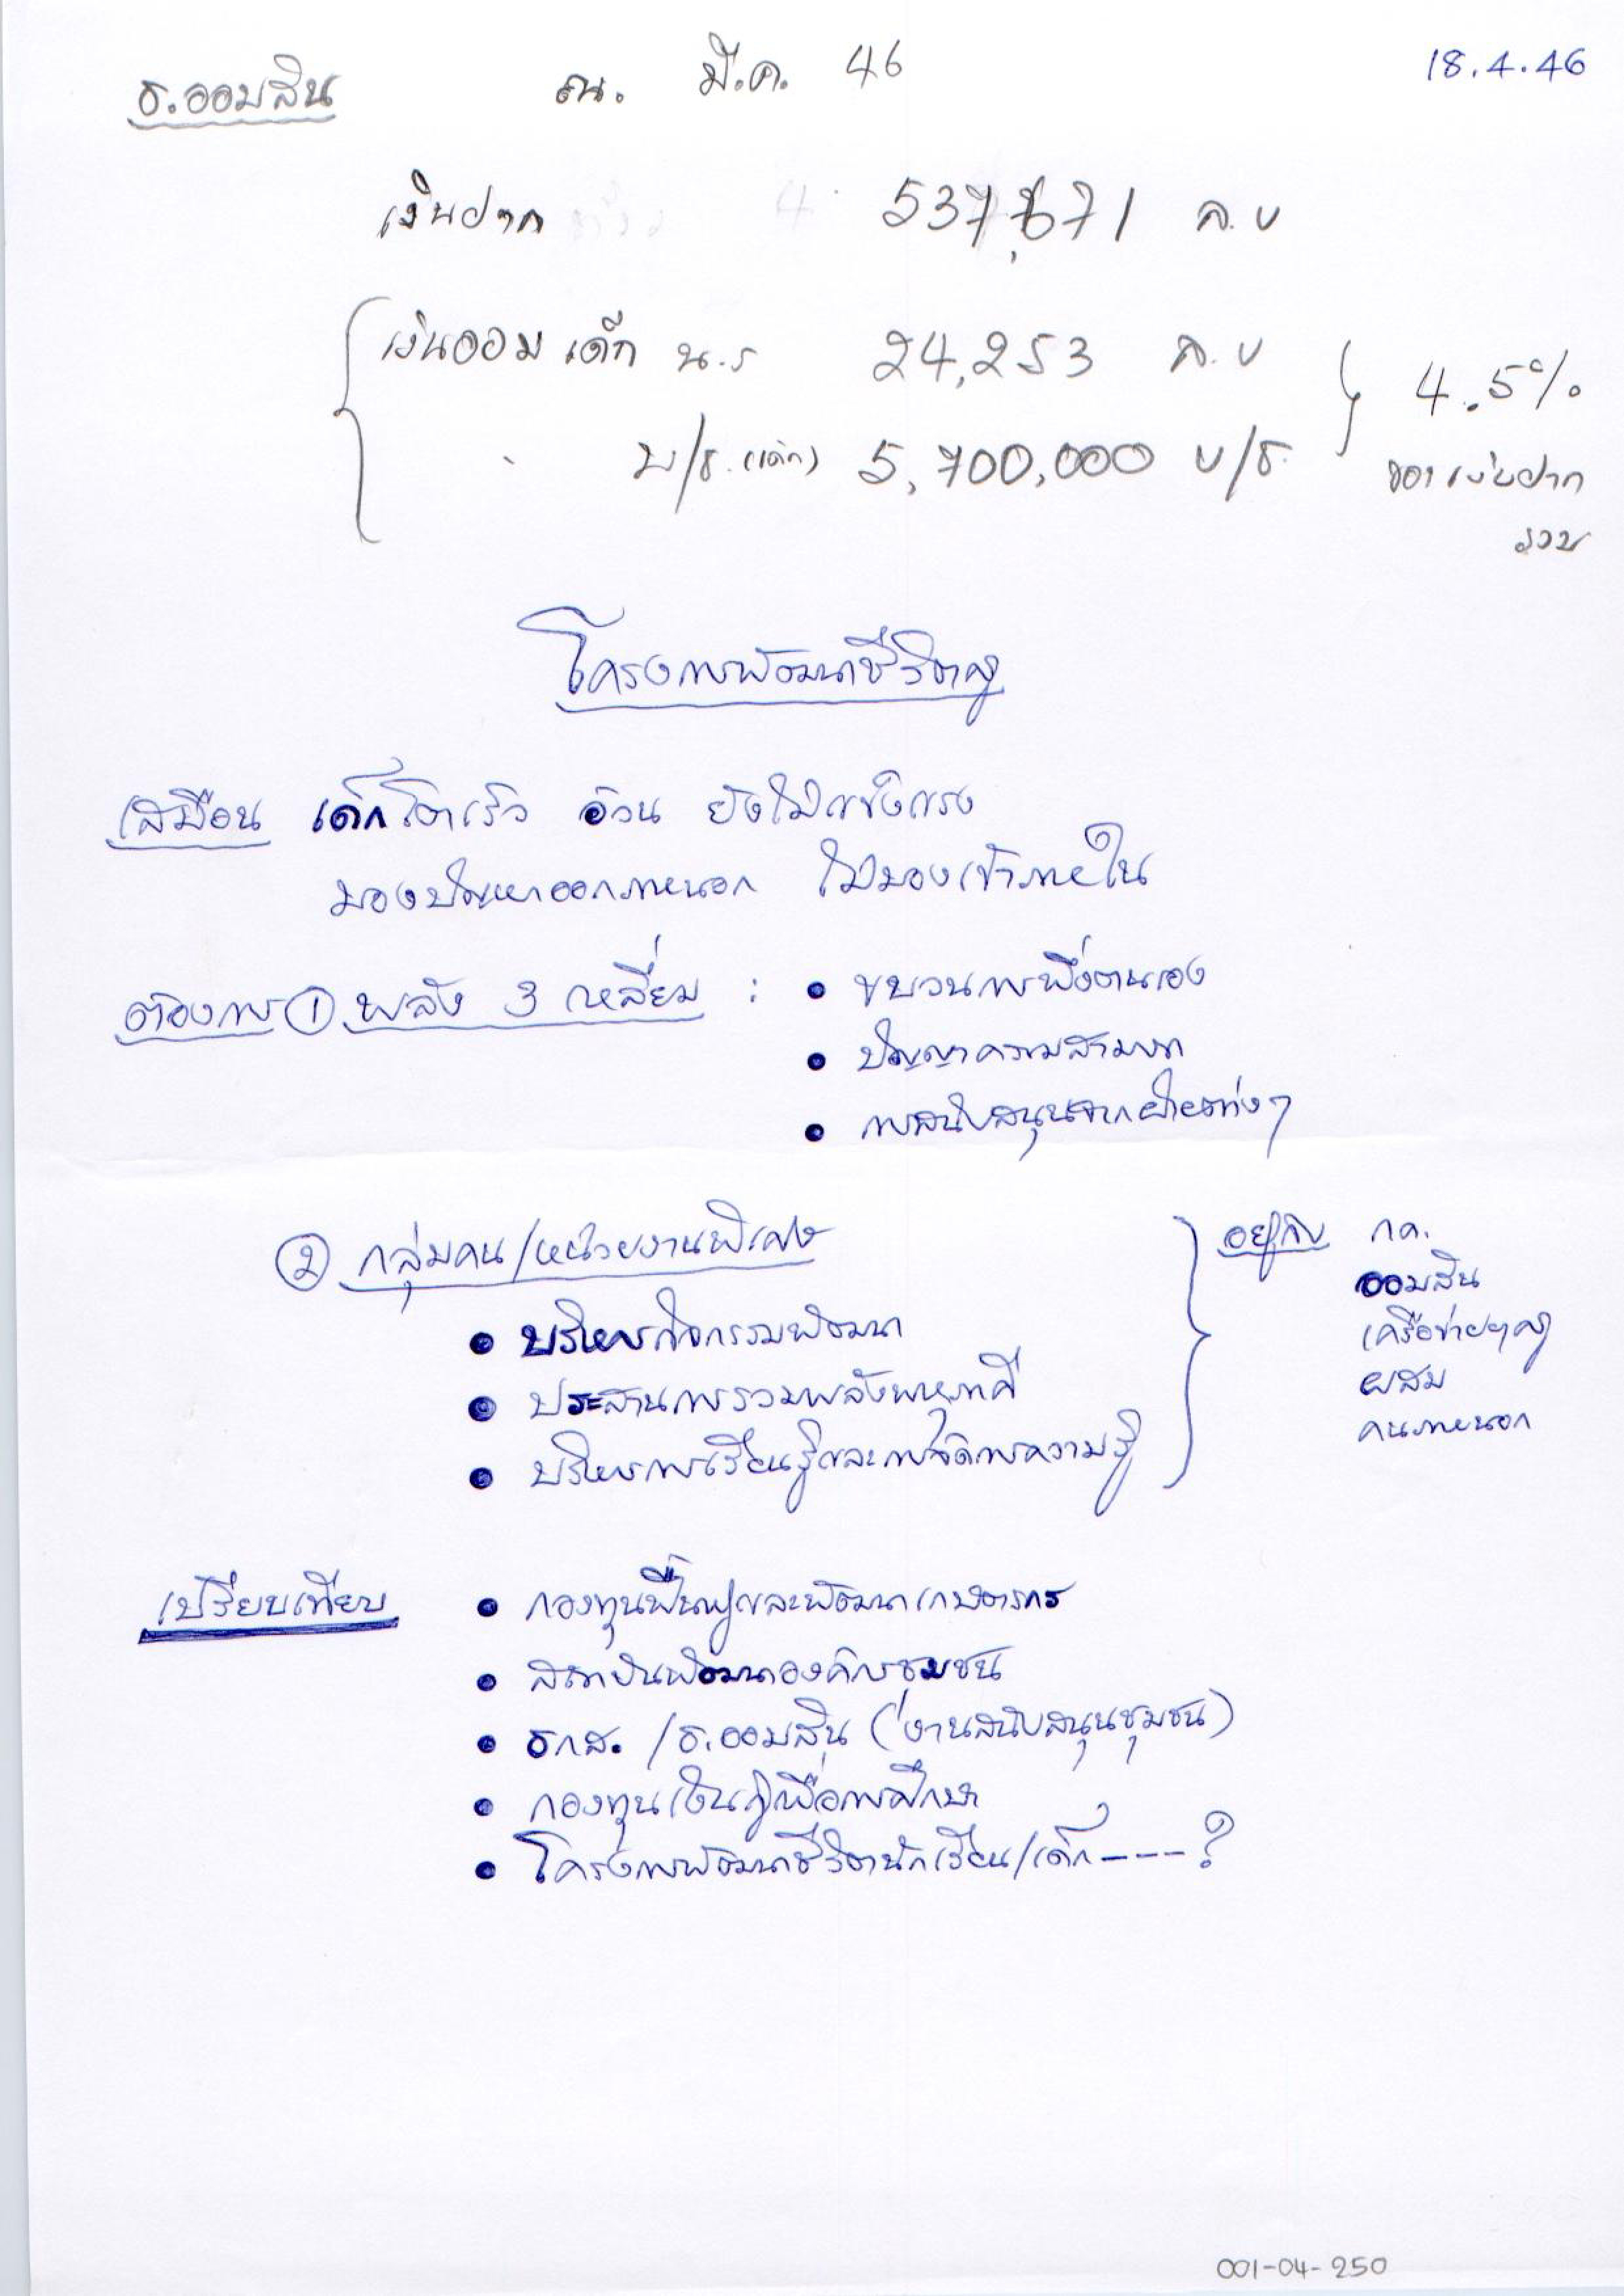 18.4.46
ธ.ออมสิน ณ. มี.ค. 46
เงินฝาก 537,671 ล.บ
เงินออม เด็ก น.ร 24,253 ล.บ
บ/ช. (เด็ก) 5,700,000 บ/ช. 4.5%
ของเงินฝาก
รวม
โครงการพัฒนาชีวิตครู
เสมือน เด็กโตเร็ว อ้วน ยังไม่แข็งแรง
มองปัญหาออกภายนอก ไม่มองเข้าภายใน
ต้องการ ① พลัง 3 เหลี่ยม : • ขบวนการพึ่งตนเอง
• ปัญญาความสามารถ
• การสนับสนุนจากฝ่ายต่างๆ
② กลุ่มคน/หน่วยงานพิเศษ
• บริหารกิจกรรมพัฒนา
• ประสานการรวมพลังพหุภาคี
• บริหารการเรียนรู้และการจัดการความรู้
อยู่กับ กค.
ออมสิน
เครือข่ายๆครู
ผสม
คนภายนอก
เปรียบเทียบ • กองทุนฟื้นฟูและพัฒนาเกษตรกร
• สถาบันพัฒนาองค์กรชุมชน
• ธกส. /ธ.ออมสิน (งานสนับสนุนชุมชน)
• กองทุนเงินกู้เพื่อการศึกษา
• โครงการพัฒนาชีวิตนักเรียน/เด็ก ---- ?
001-04-250